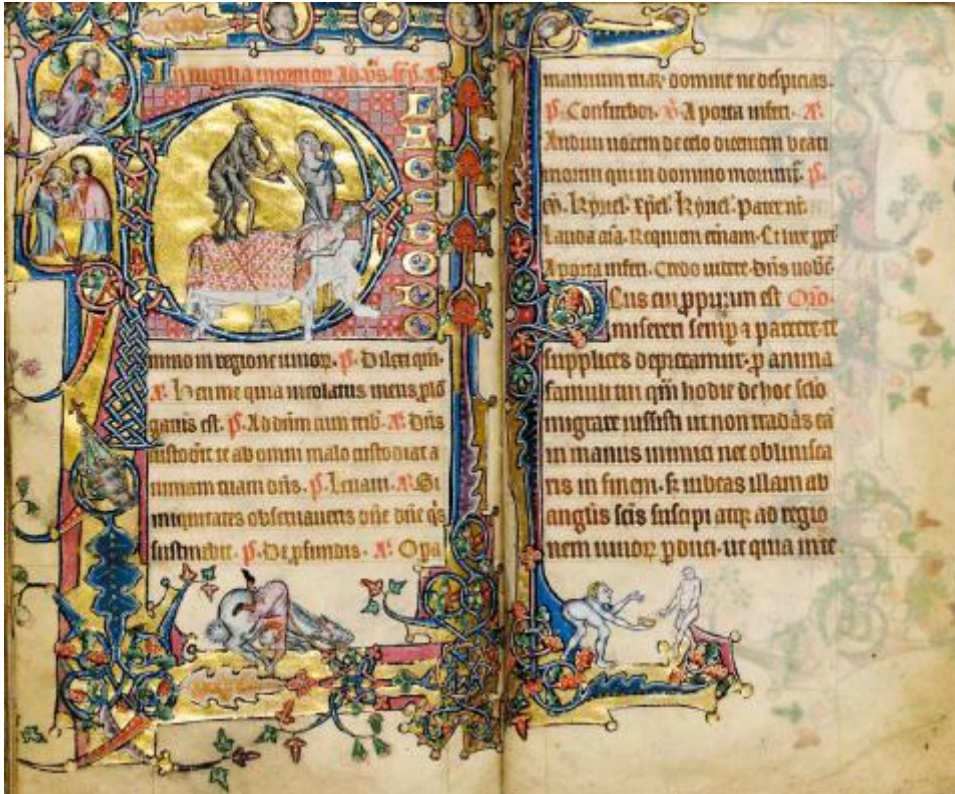 In vigilia mortuor ad v̄s
meno in regione viuoꝝ. p̄. Dilexi qm̄.
Heu me quia incolatus meus plō
gatus est. p̄. Ad dnm̄ cum trib̄. A. Dn̄s
custodit te ab omni malo custodiat a
nimam tuam dn̄s. p̄. Leuaui. A. Si
iniquitates obseruaueris dn̄e dn̄e q̄s
sustinebit. p̄. De ꝓfundis. A. Opa
manuum tuaꝝ domine ne despicias.
p̄. Confitebor. v̄. A porta inferi. A.
Audiui uocem de celo dicentem beati
mortui qui in domino moriunt̄. p̄.
Kyriel. xp̄el. Kyriel. Pater nr̄.
Lauda aīa. Requiem etnam. Et lux ppet
A porta inferi. Credo uidere. Dn̄s uobīc.
Deus cui ꝓprium est Oro.
misereri semp ⁊ parcere te
supplices deprecamur. ꝓ anima
famuli tui qm̄ hodie de hoc sclo
migrare iussisti ut non tradas eā
in manus inimici nec obliuisca
ris in finem. sꝫ iubeas illam ab
angl̄is sc̄is suscipi atqꝫ ad regio
nem uiuoꝝ ꝑduci. ut quia in te